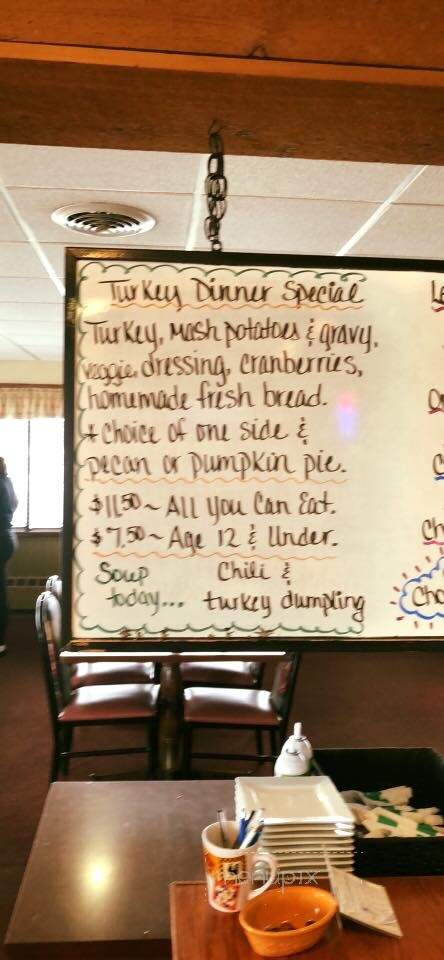 Turkey Dinner Special
Turkey, Mash potatoes & gravy,
veggie, dressing, cranberries,
homemade fresh bread.
+ Choice of one side &
pecan or pumpkin pie.
$11.50 ~ All You Can Eat.
$7.50 ~ Age 12 & Under.
Soup Chili &
today... turkey dumpling
Ch
Cho